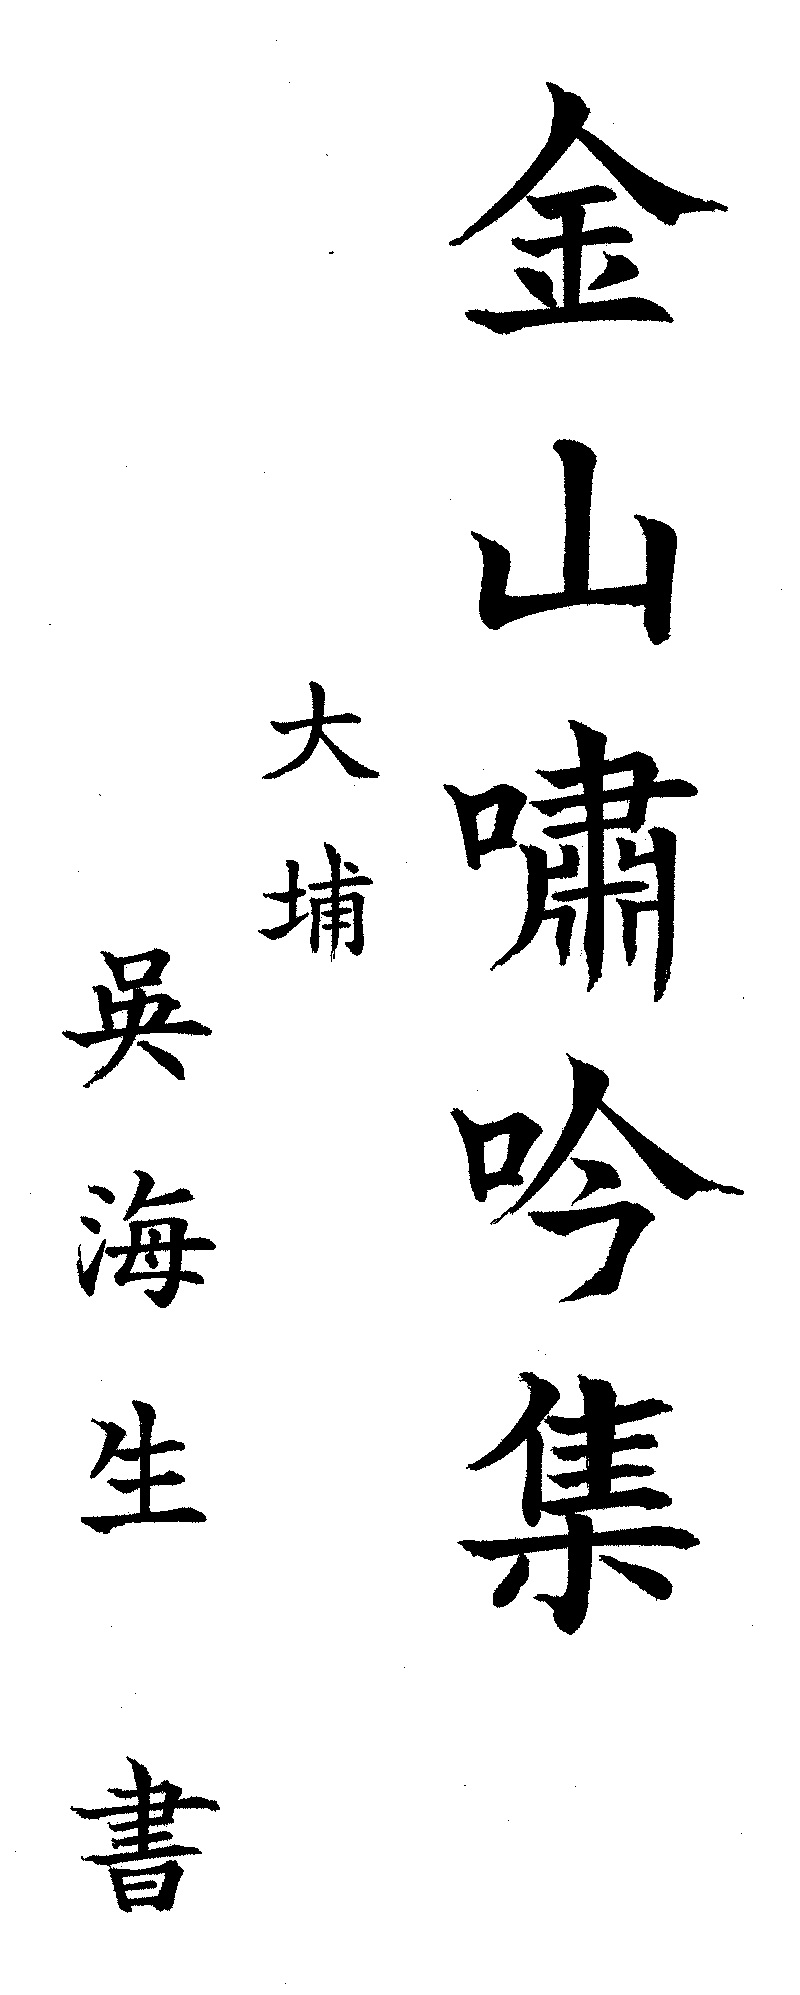 金山嘯吟集
大埔
吳海生書